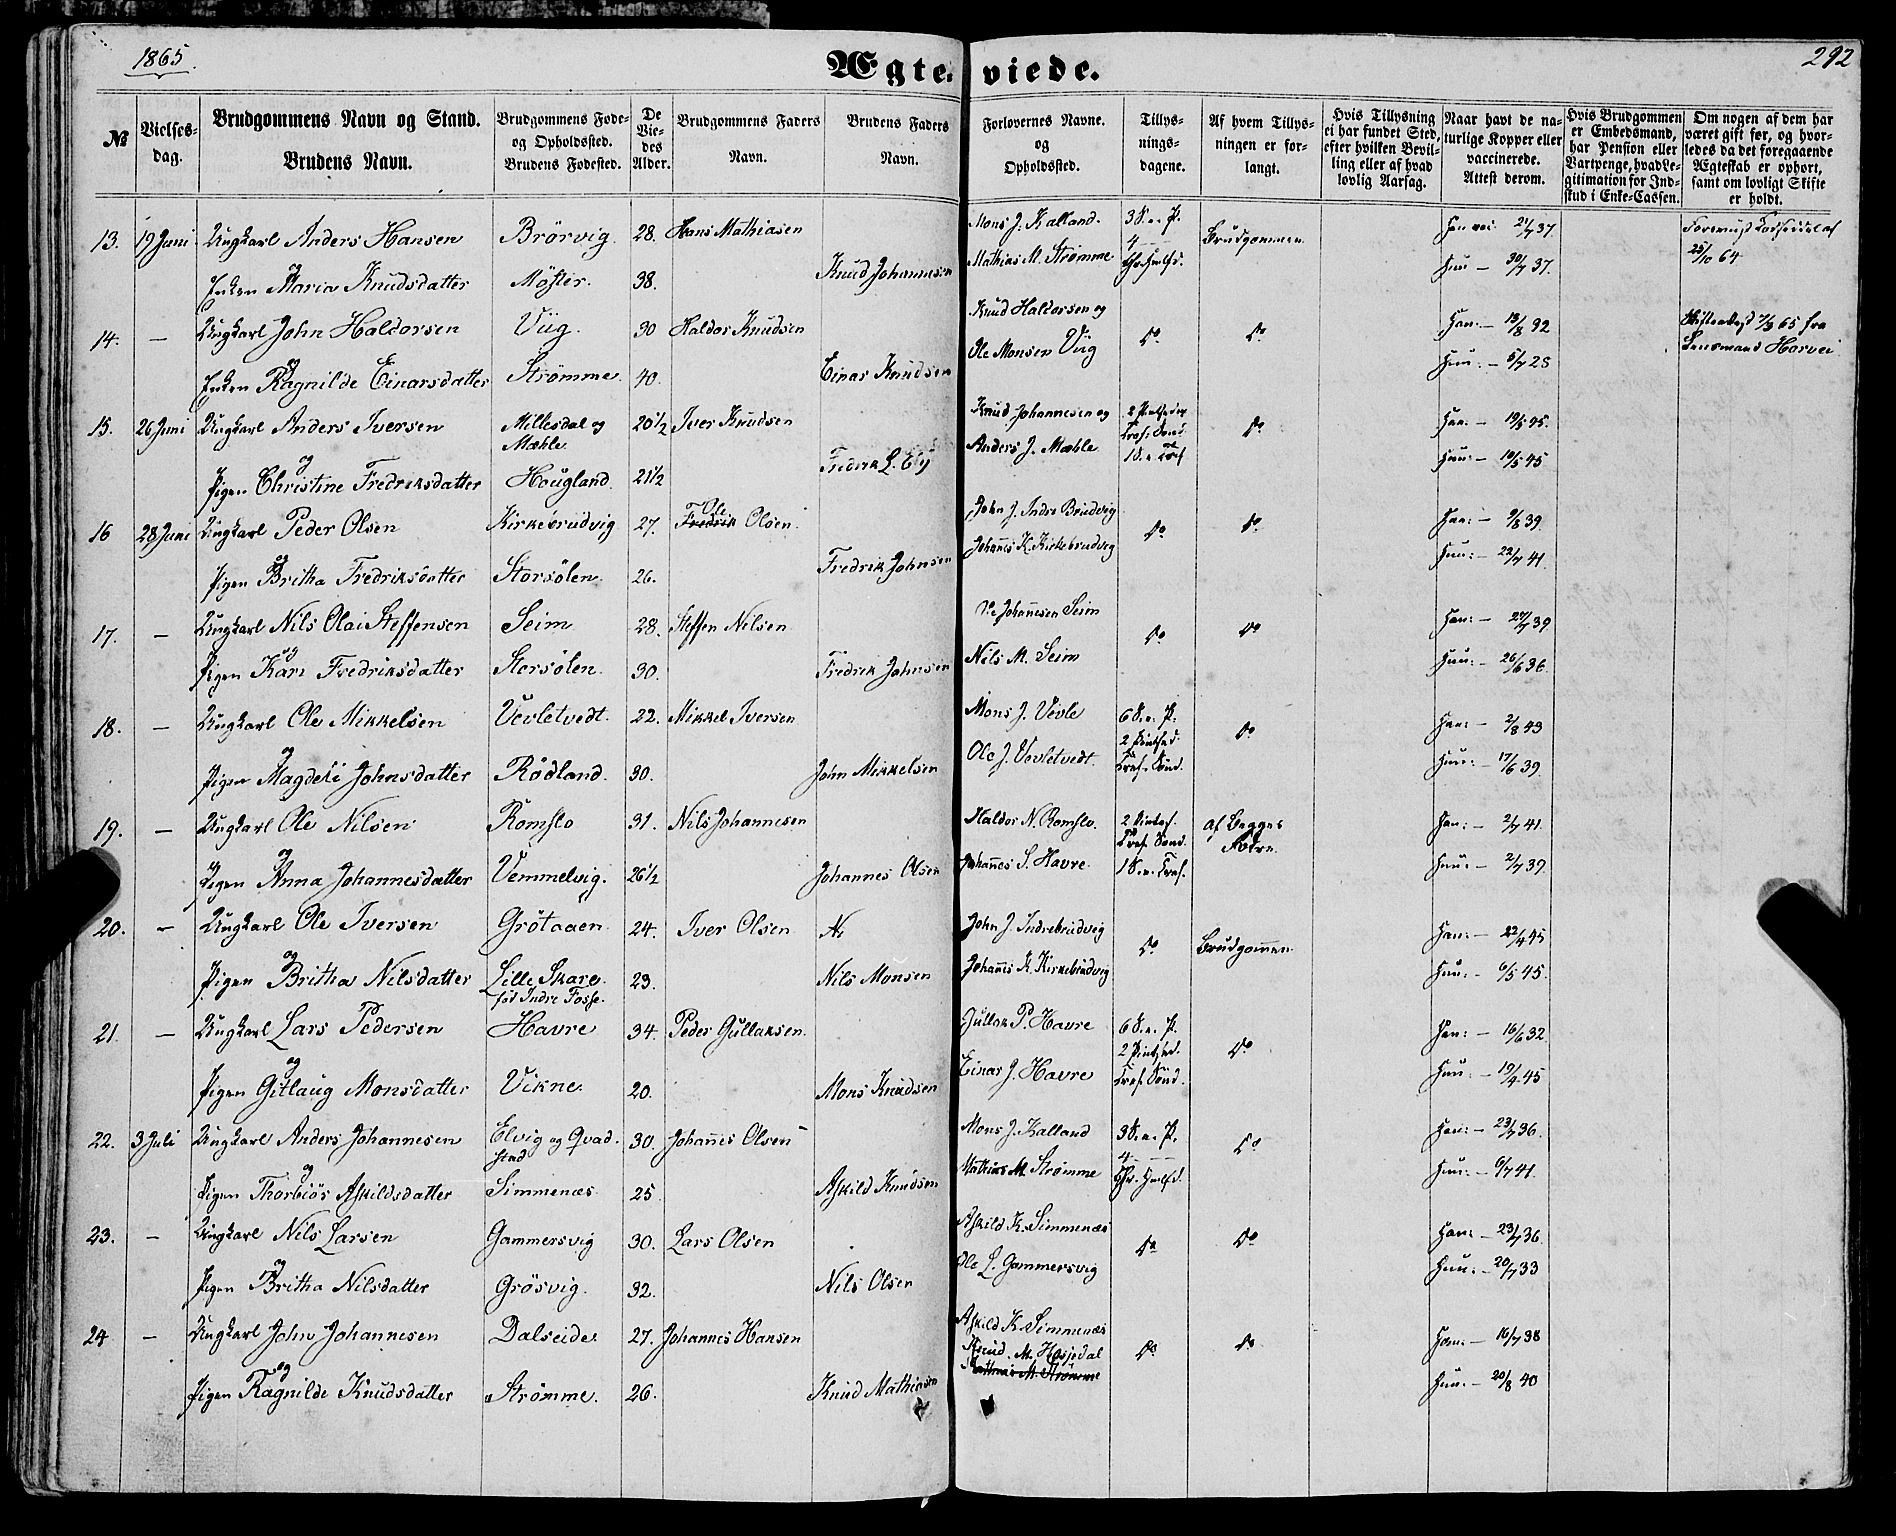 1865.
Ægteviede.
292
№
Vielsesdag.
Brudgommens Navn og Stand.
Brudens Navn.
Brudgommens Føde-
og Opholdssted.
Brudens Fødested.
De Viedes Alder.
Brudgommens Faders
Navn.
Brudens Faders
Navn.
Forlovernes Navne.
og
Opholdssted.
Tillysningsdagene.
Af hvem Tillysningen er forlangt.
Hvis Tillysning ei har fundet Sted, efter hvilken Bevilling eller af hvad lovlig Aarsag.
Naar havt de naturlige Kopper eller vaccinerede. Attest derom.
Hvis Brudgommen er Embedsmand, har Pension eller Vartpenge, hvad Legitimation for Indskud i Enke-Cassen.
Om nogen af dem har været gift før, og hvorledes da det foregaaende Ægteskab er ophørt, samt om lovligt Skifte er holdt.
13. 19 Juni Ungkarl Anders Hansen Brörvig. 28. Hans Mathiasen Mons J. Kalland. 3 S. e. P. Brudgommen 21/7 37.
og
Enken Maria Knudsdatter Möster. 38. Knud Johannesen Mathias M. Strømme 4 Hun — 30/7 37. 25/10 64
14. — Ungkarl John Haldorsen Viig. 30 Haldor Knudsen Knud Haldorsen og Do Do Han: — 65 fra
og
Enken Ragnilde Einarsdatter Strömme. 40. Einar Knudsen Ole Monsen Viig Hun: — 5/7 25 Lensmand Horvei
15. 26 Juni Ungkarl Anders Iversen Millesdal og Mæhle. 20½ Iver Knudsen Knud Johannesen og Do Han: — 19/5 45.
og
Pigen Christine Fredriksdatter Hougland. 21½ Fredrik L. Anders J. Mæhle Hun: — 19/5 45
16 28 Juni Ungkarl Peder Olsen Kirkebrudvig 27. Ole Olsen. John J. Indre Brudvig Do Do Han: — 9/8 39.
og
Pigen Britha Fredriksdatter Storsölen. 26. Fredrik Johnsen Johannes K. Kirkebrudvig Hun: — 22/7 41.
17. — Ungkarl Nils Olai Steffensen Seim 28. Steffen Nilsen Ole Johannesen Seim Do Do Han: — 27/7 39
og
Pigen Kari Fredriksdatter Storsölen. 30. Fredrik Johnsen Nils M. Seim Hun: — 26/6 36.
18. — Ungkarl Ole Mikkelsen Vevletvedt. 22. Mikkel Iversen Mons J. Vevle 6 S. e. P. Do Han: — 2/8 43
og
Pigen Magdeli Johnsdatter Rödland. 30. John Mikkelsen Ole J. Vevletvedt. Hun: — 17/6 39.
19. — Ungkarl Ole Nilsen Romslo 31. Nils Johannesen Haldor N. Romslo. af Begges Han: — 2/7 41.
og
Pigen Anna Johannesdatter Vemmelvig. 26½ Johannes Olsen Johannes S. Havre. Hun: — 2/7 39.
20. — Ungkarl Ole Iversen Grötaaen. 24. Iver Olsen Ni John J. Indrebrudvig Do Brudgommen Han: — 22/4 45
og
Pigen Britha Nilsdatter Lille Skare. 23. Nils Monsen Johannes K. Kirkebrudvig Hun: — 6/5 45.
fød Indre Fosse.
21. — Ungkarl Lars Pedersen Havre 34. Peder Gullaksen Gullak P. Havre 6 S. e. P. Do Han: — 16/6 32
og
Pigen Gitlaug Monsdatter Vikne. 20. Mons Knudsen Einar J. Havre Hun: — 19/9 45
22. 3 Juli Ungkarl Anders Johannesen Elvig og Qvadstad 30. Johannes Olsen Mons J. Kalland 3 S. e. P. Do Han: — 23/7 36.
og
Pigen Thorbiör Askildsdatter Simmenæs 25 Askild Knudsen Mathias M. Strømme 4 Hun: — 6/7 41.
23. — Ungkarl Nils Larsen Gammersvig 30. Lars Olsen Askild K. Simmenæs Do Do Han: — 23/7 36.
og
Pigen Britha Nilsdatter Grösvig. 32. Nils Olsen Ole L. Gammersvig Hun: — 20/7 33
24 — Ungkarl John Johannesen Dalseide. 27. Johannes Hansen Askild K. Simmenæs Do Do Han: — 16/7 38
og Knud. M. Hosjedal
Pigen Ragnilde Knudsdatter Strömme. 26. Knud Mathiasen Mathias M. Strømme Hun. — 20/8 40